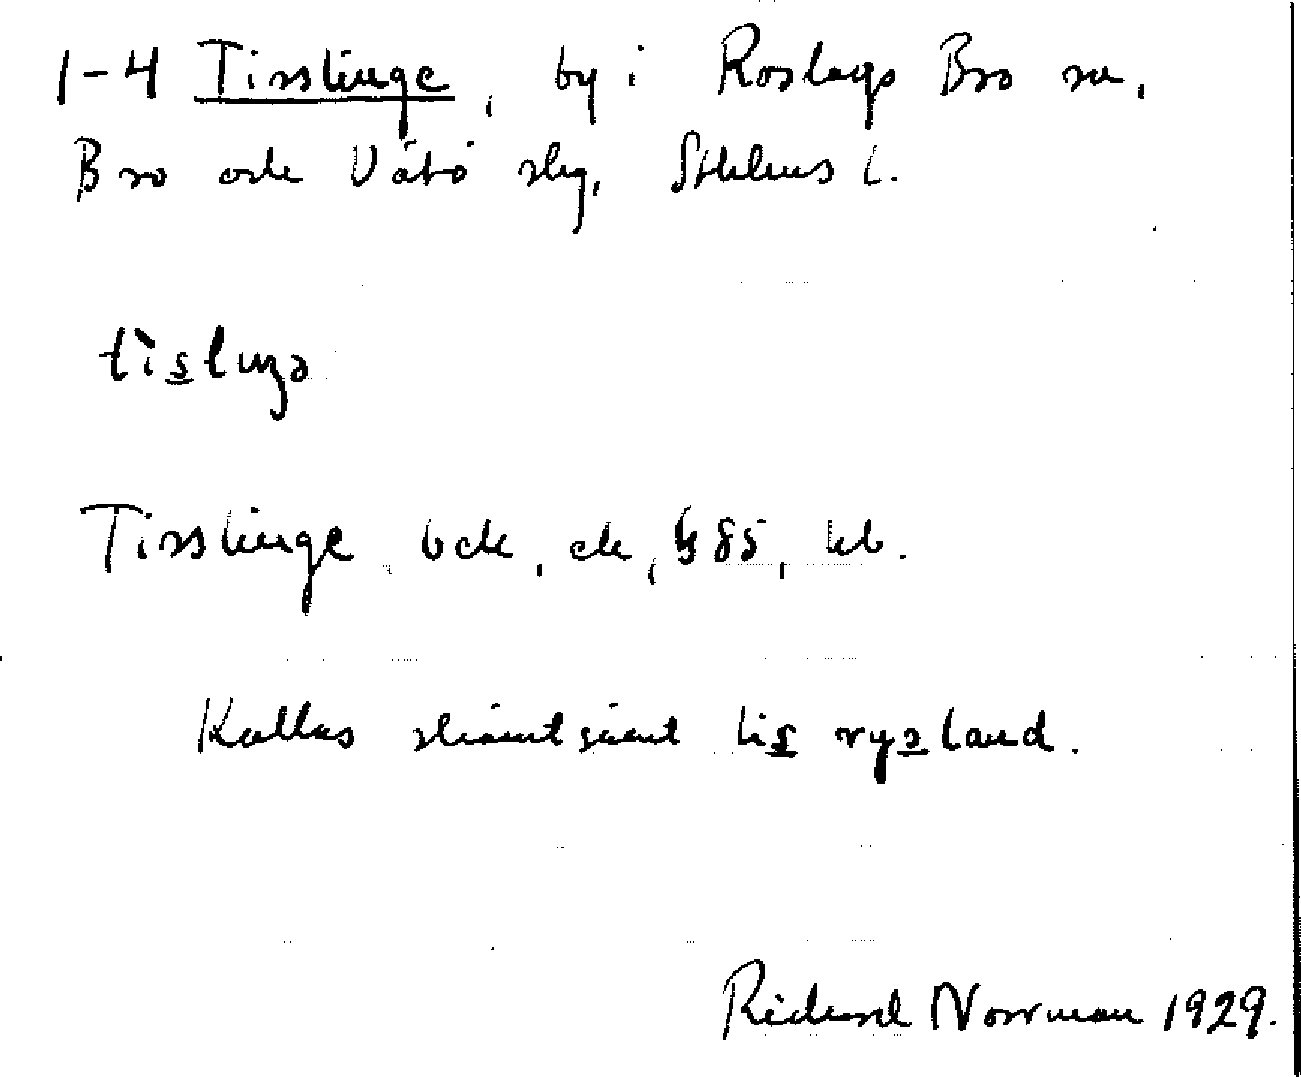 1-4 Tisslinge, by i Roslags Bro sn,
Bro och Vätö slg, Sthlms l.
tìslıŋə
Tisslinge, bck, ek, § 85, kb.
Kallas skämtsamt lis ryəland.
Richard Norrman 1929.